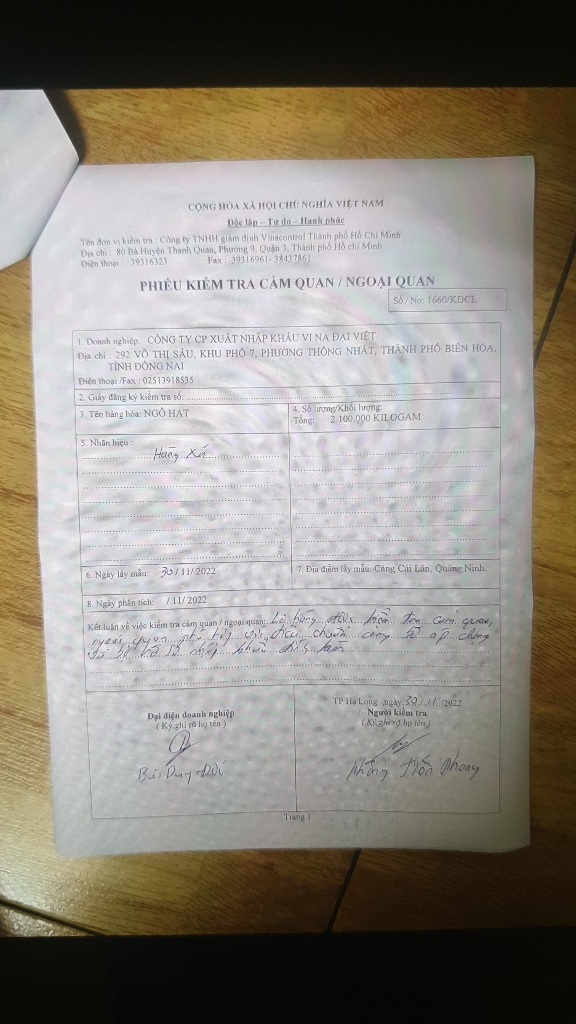 CỘNG HÒA XÃ HỘI CHỦ NGHĨA VIỆT NAM
Độc lập – Tự do – Hạnh phúc
Tên đơn vị kiểm tra : Công ty TNHH giám định Vinacontrol Thành phố Hồ Chí Minh
Địa chỉ : 80 Bà Huyện Thanh Quan, Phường 9, Quận 3, Thành phố Hồ chí Minh
Điện thoại : 39316323 Fax : 39316961- 38437861
PHIẾU KIỂM TRA CẢM QUAN / NGOẠI QUAN
Số / No: 1660/KDCL
1. Doanh nghiệp: CÔNG TY CP XUẤT NHẬP KHẨU VI NA ĐẠI VIỆT
Địa chỉ : 292 VÕ THỊ SÁU, KHU PHỐ 7, PHƯỜNG THỐNG NHẤT, THÀNH PHỐ BIÊN HÒA,
TỈNH ĐỒNG NAI
Điện thoại /Fax : 02513918535
2. Giấy đăng ký kiểm tra số:
3. Tên hàng hóa: NGÔ HẠT
4. Số lượng/Khối lượng:
Tổng: 2.100.000 KILOGAM
5. Nhãn hiệu :
Hàng Xá
6. Ngày lấy mẫu: 30/11/2022
7. Địa điểm lấy mẫu: Cảng Cái Lân, Quảng Ninh.
8. Ngày phân tích: /11/2022
Kết luận về việc kiểm tra cảm quan / ngoại quan: Lô hàng được kiểm tra cảm quan,
ngoại quan phù hợp với tiêu chuẩn công bố áp dụng
TP Hạ Long ,ngày 30/11/2022
Đại diện doanh nghiệp
( Ký,ghi rõ họ tên)
Người kiểm tra
( Ký,ghi rõ họ tên)
Bùi Duy
Phong
Trang 1